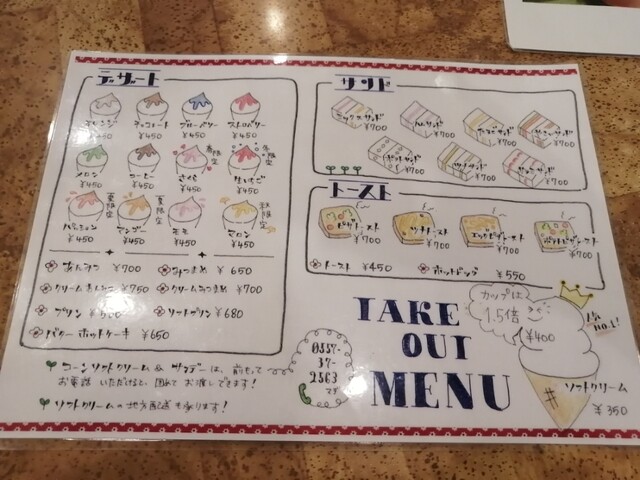 デザート
オレンジ ¥450
チョコレート ¥450
ブルーベリー ¥450
ストロベリー ¥450
メロン ¥450
コーヒー ¥450
春限定
さくら ¥450
冬限定
生いちご ¥450
パッション ¥450
夏限定
マンゴー ¥450
夏限定
モモ ¥450
秋限定
マロン ¥450
あんみつ ¥700
みつまめ ¥650
クリームあんみつ ¥750
クリームみつまめ ¥700
プリン
ソフトプリン ¥680
バターホットケーキ ¥650
サンド
ミックスサンド ¥700
ハムサンド ¥700
たまごサンド ¥700
サンド ¥700
ポテトサンド ¥700
ツナサンド ¥700
サンド ¥700
トースト
ピザトースト ¥700
ツナトースト ¥700
エッグピザトースト ¥700
ポテトピザトースト ¥700
トースト ¥450
ホットドッグ ¥550
TAKE
OUT
MENU
カップは
1.5倍
¥400
人気
NO.1!
ソフトクリーム
¥350
コーンソフトクリーム & サンデーは、前もって
お電話いただけると、固めてお渡しできます!
ソフトクリームの地方配送も承ります!
0557-
37-
2563
マデ